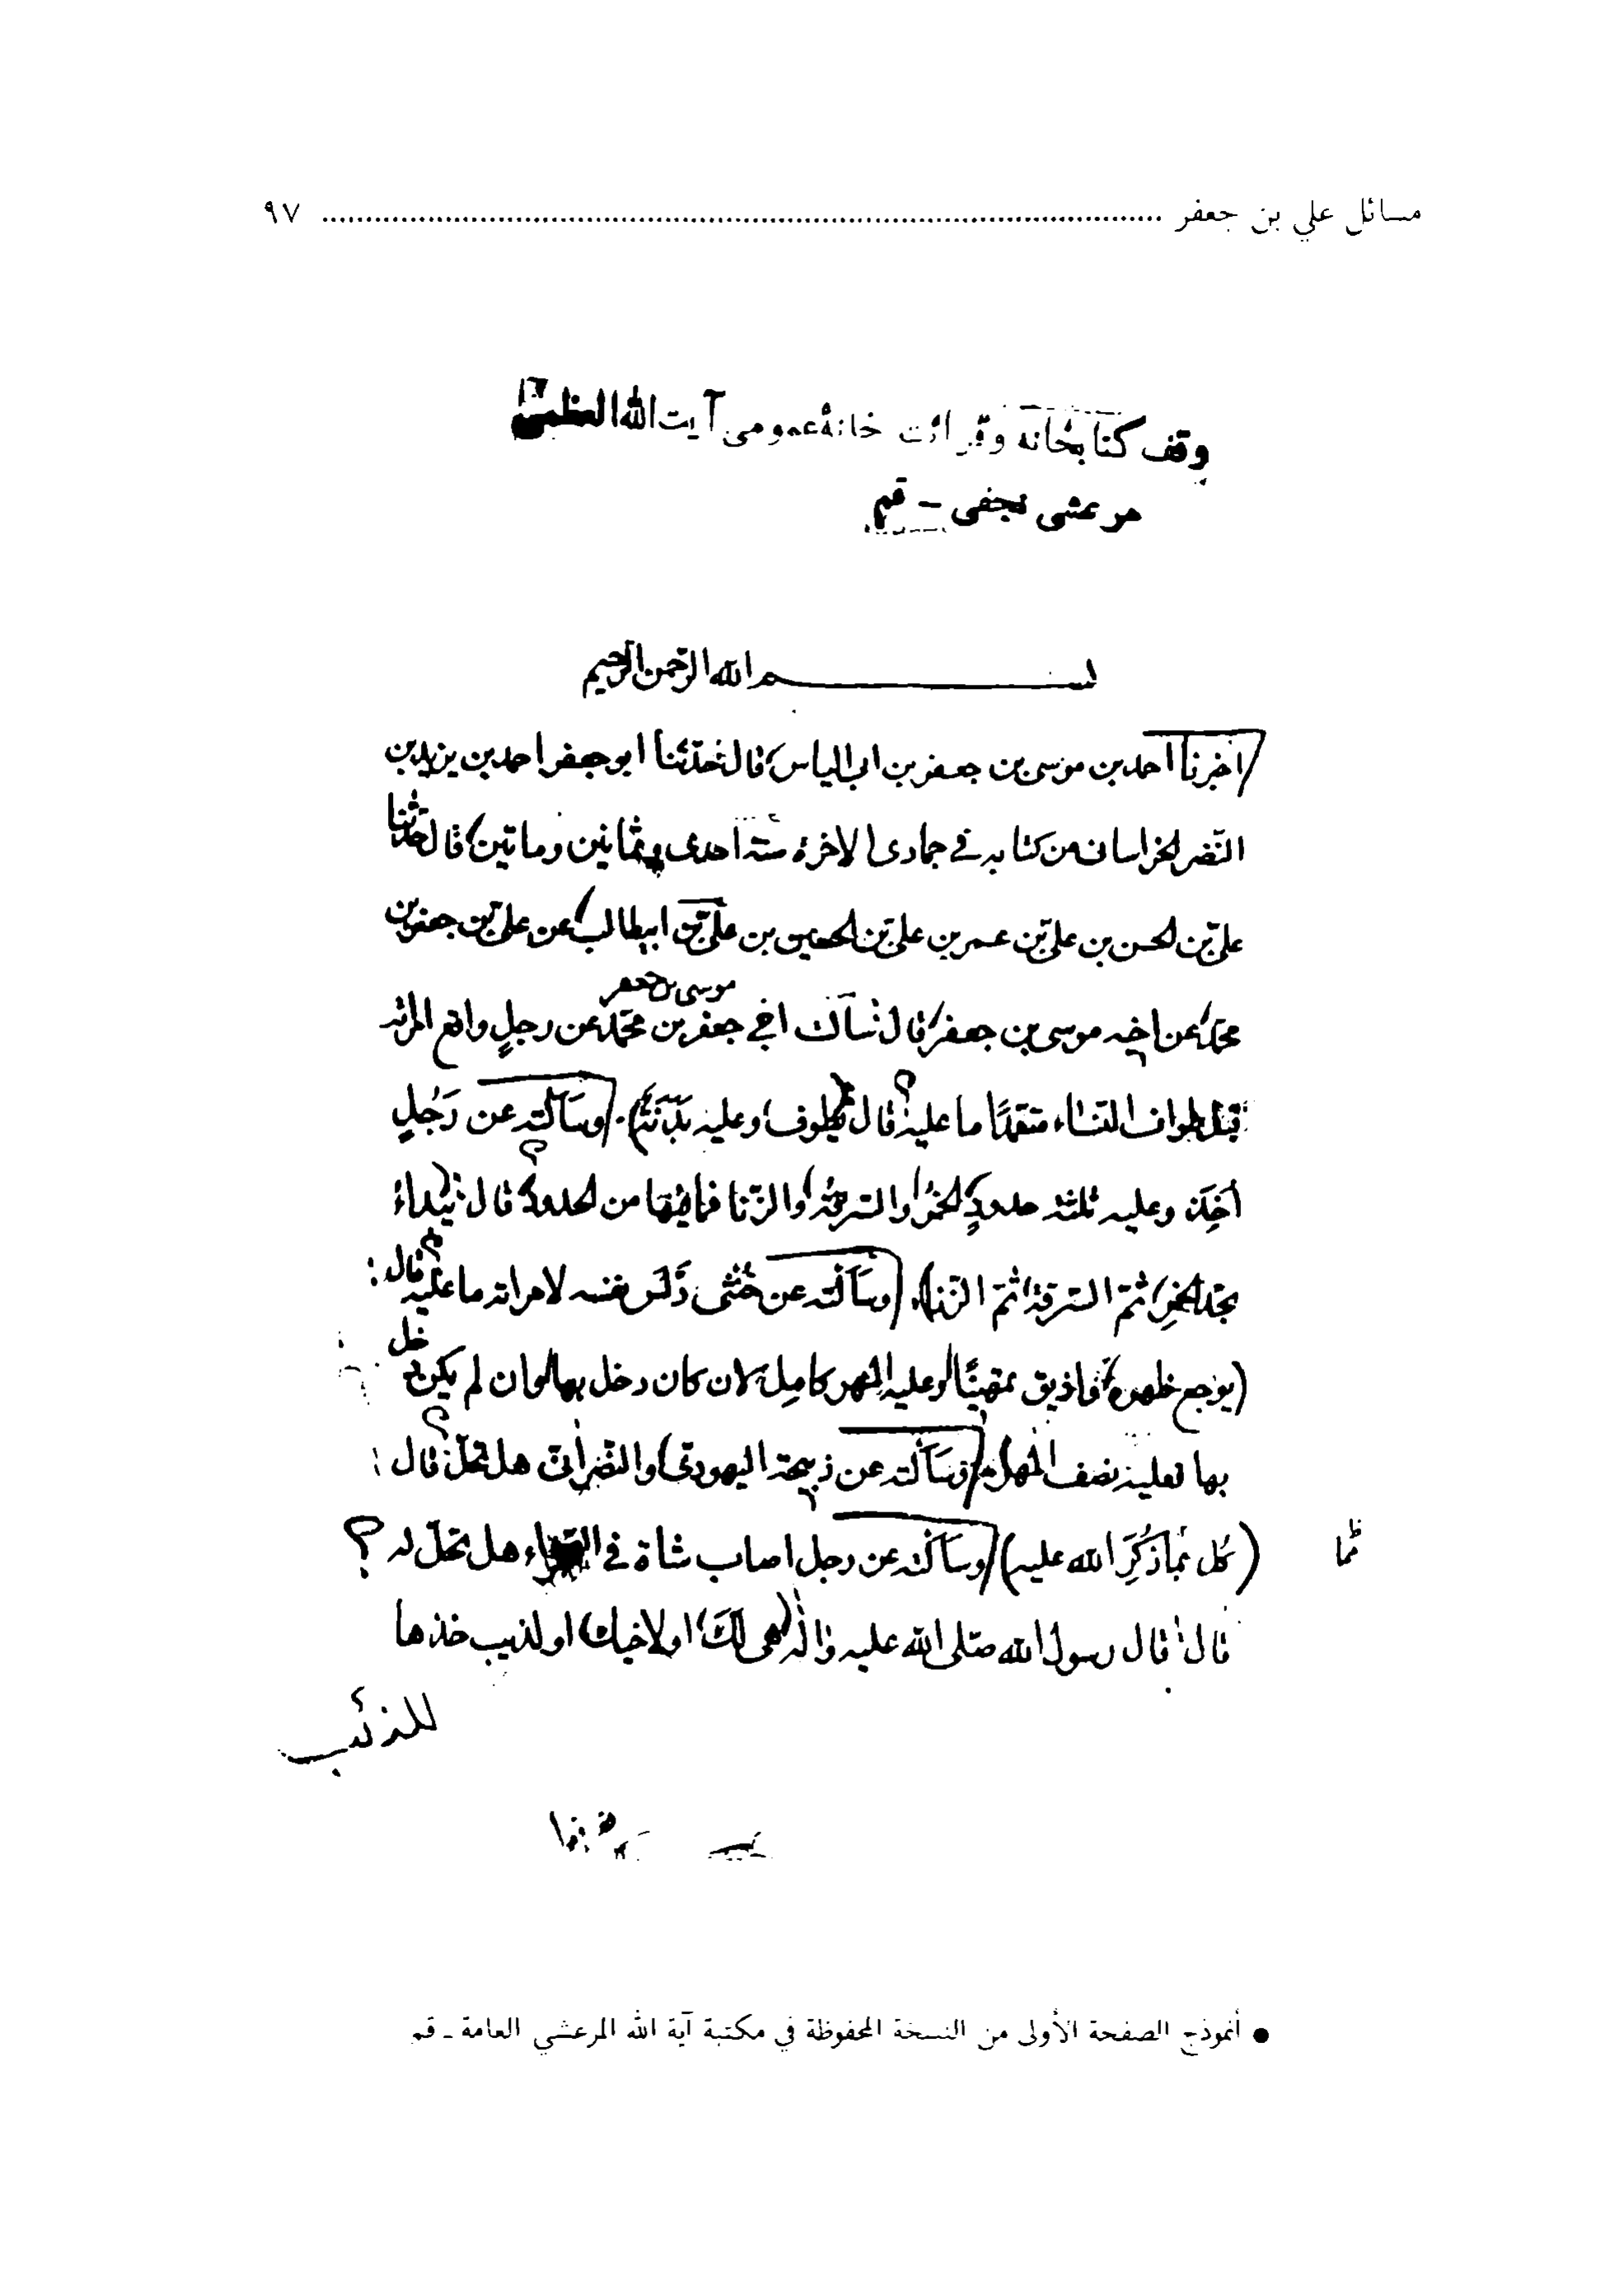 مسائل علي بن جعفر ........................................................ ٩٧
وقف كتابخانه وقرائت خانهٔ عمومى آيت الله العظمى
مرعشى نجفى - قم
بسم الله الرحمن الرحيم
اخبرنا احمد بن موسى بن جعفر بن ابى الياس قال حدّثنا ابو جعفر احمد بن يزيد بن
النّضر الخراسانى من كتابه فى جمادى الاخرة سنة احدى وثمانين ومأتين قال حدّثنا
علىّ بن الحسن بن علىّ بن عمر بن علىّ بن الحسين بن علىّ بن ابيطالب عن علىّ بن جعفر بن
موسى بن جعفر
محمّد عن اخيه موسى بن جعفر قال سألت اخى جعفر بن محمّد عن رجلٍ واقع امراته
قبل طواف النّساء متعمّدًا ما عليه؟ قال يطوف وعليه بَدَنَة). وسَألته عن رَجُلٍ
أخِذ وعليه ثلثة حدودٍ الخمر والسرقة والزّنا فما فيها من الحدود؟ قال يبداء
بحّد الخمرِ ثمّ السرقة ثمّ الزّنا). وسَألته عن خُنثى دَلّسَ نفسه لامراته ما عليه؟ قال:
(يوجع ظهره واذيق تمهينًا وعليه المهر كامِلا ان كان دخل بها وان لم يكن
خل
بها فعليه نصف المهر) وسَألته عن ذبيحة اليهودىّ والنّصرانىّ هل تحلّ؟ قال:
(كُل مما ذُكِرَ الله عليه) وسَألته عن رجل اصاب شاة فى هل تحلّ له ؟
مما
قال قال رسول الله صلى الله عليه وآله (هى لكَ او لاخيك) او لذيب خذها
للذئب
● أنموذج الصفحة الأولى من النسخة المحفوظة في مكتبة آية الله المرعشي العامة ـ قم